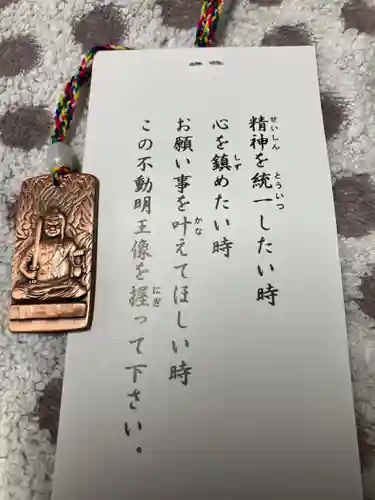 精神を統一したい時
心を鎮めたい時
お願い事を叶えてほしい時
この不動明王像を握って下さい。